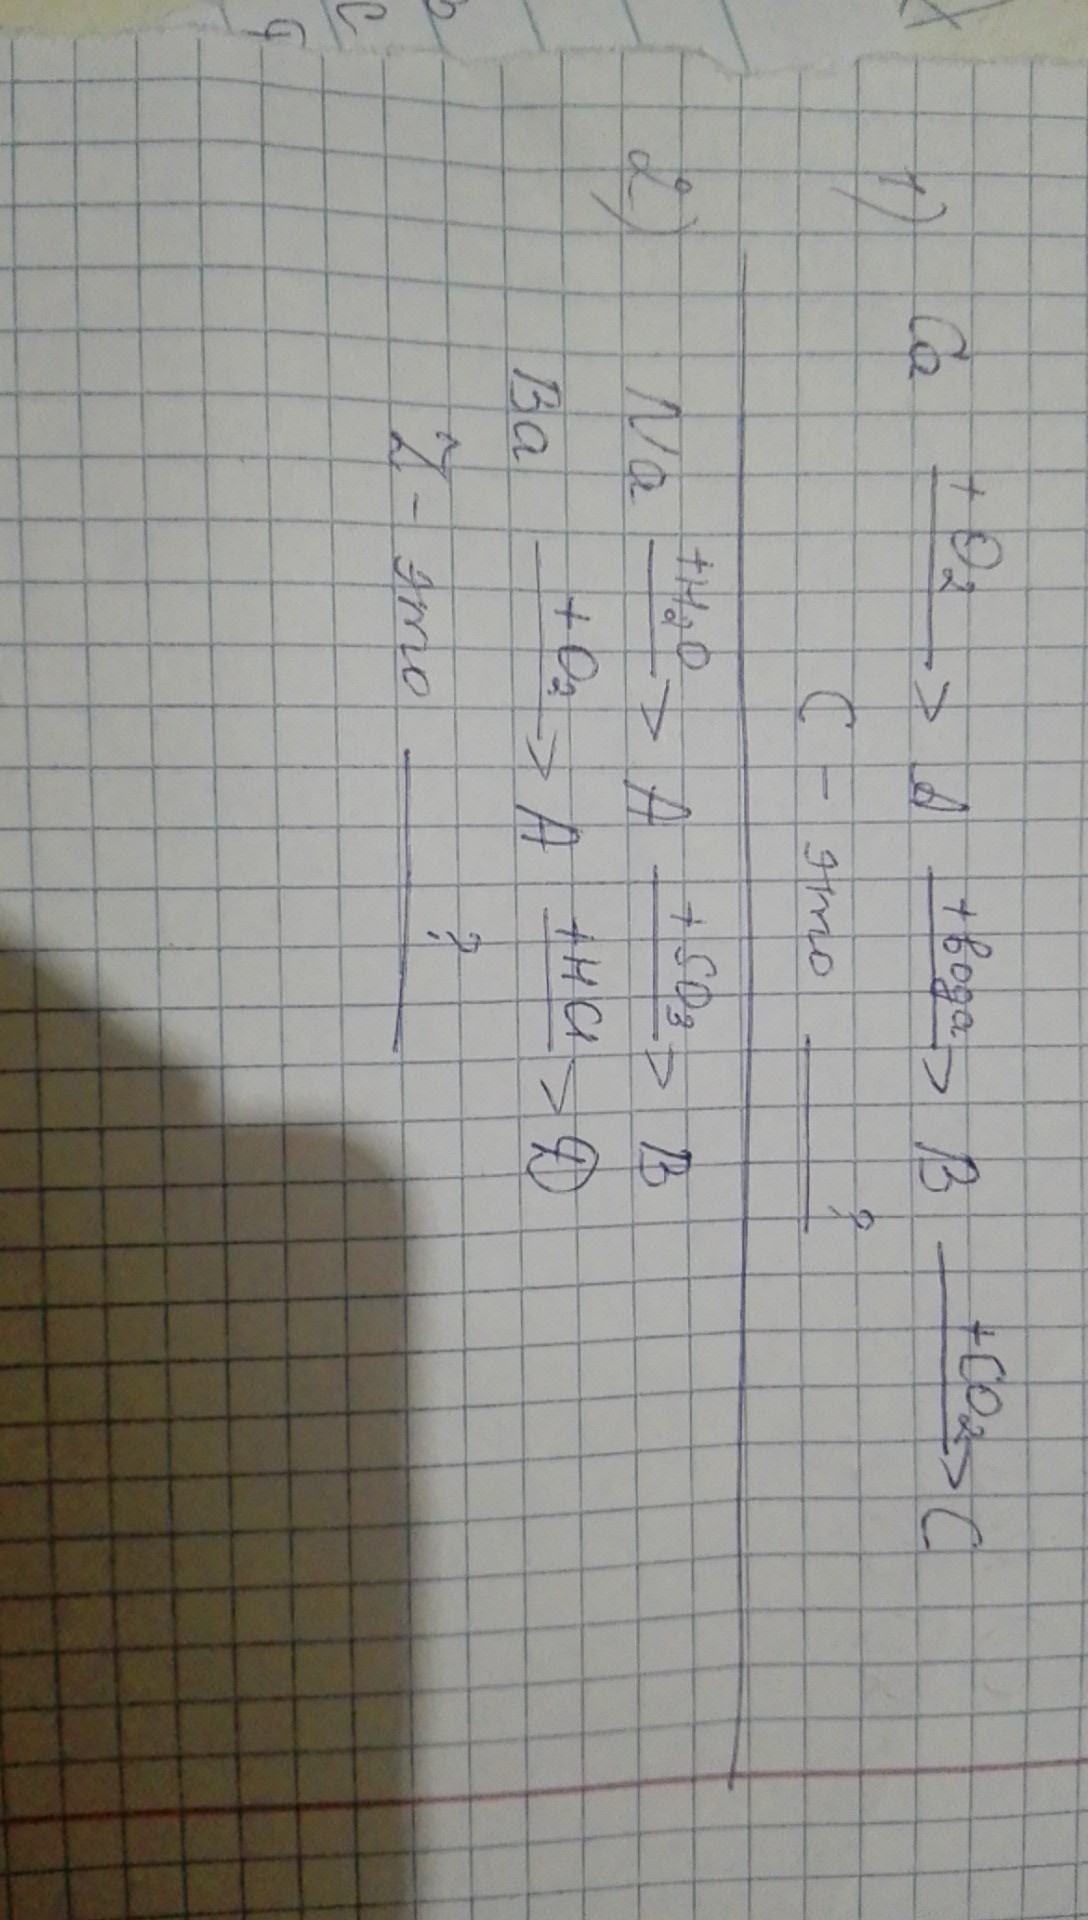 1) Ca +O2 → A +вода → B +CO2 → C
C - это ?
2) Na +H2O → A +SO3 → B
Ba +O2 → A +HCl → D
Z - это ?